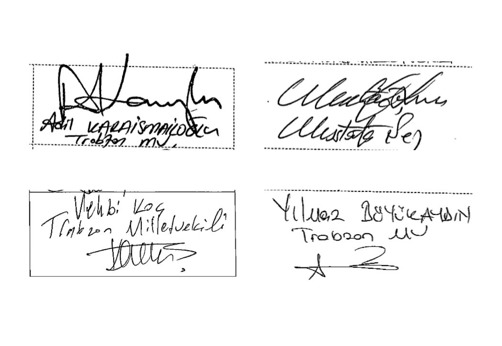 Adil KARAİSMAİLOĞLU
Trabzon MV.
Mustafa Şen
Vehbi Koç
Trabzon Milletvekili
Yılmaz BÜYÜKAYDIN
Trabzon MV